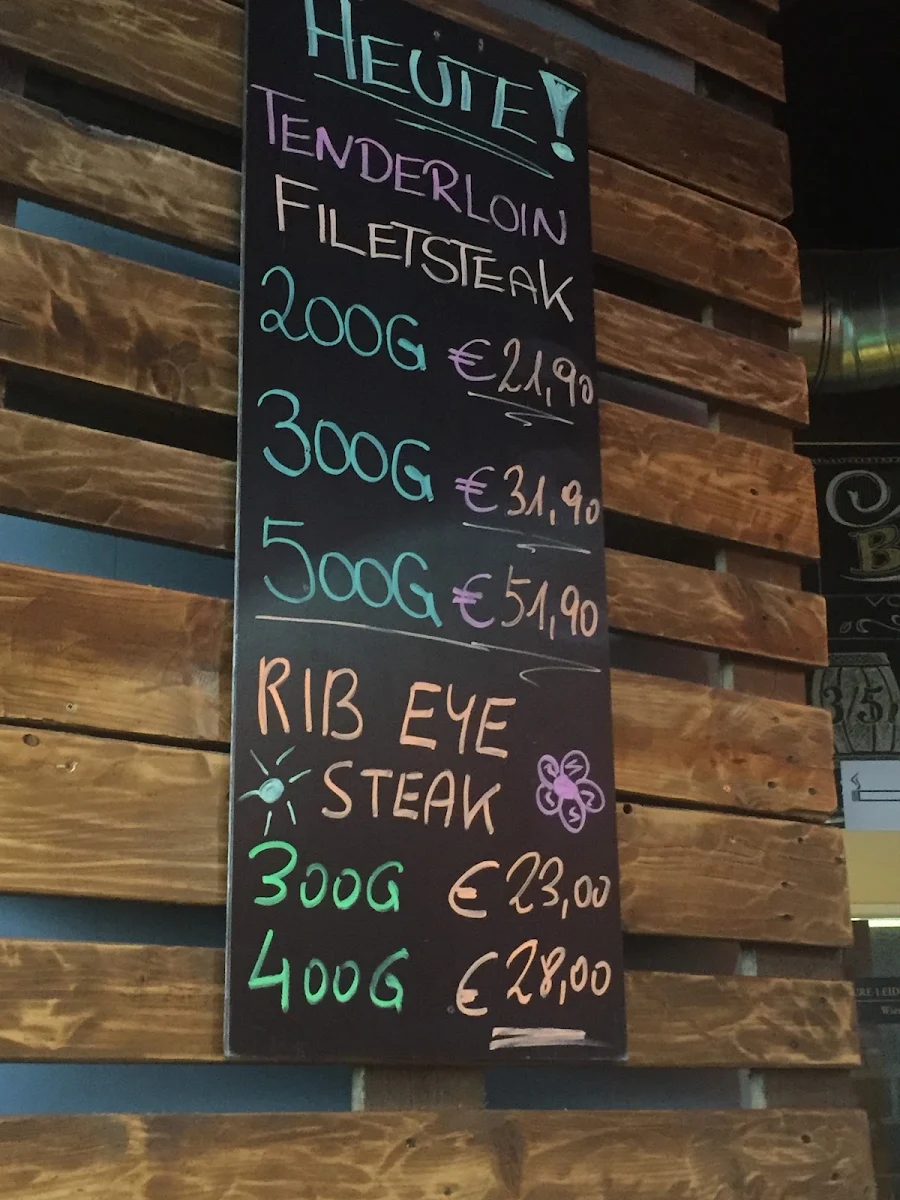 HEUTE!
TENDERLOIN
FILETSTEAK
200G €21,90
300G €31,90
500G €51,90
RIB EYE
STEAK
300G €23,00
400G €28,00
3/5